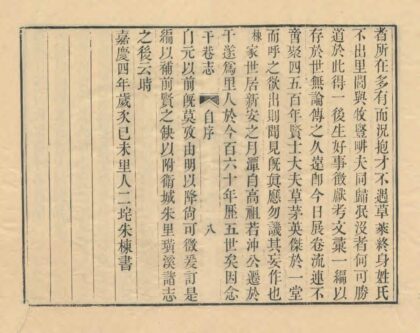 者所在多有而況抱才不遇草萊終身姓氏
不出里閈與牧豎畊夫同歸泯沒者何可勝
道於此得一後生好事徵獻考文彙一編以
存於世無論傳之久遠卽今日展卷流連不
啻聚四五百年賢士大夫草茅英傑於一堂
而呼之欲出則聞見旣眞應勿譏其妄作也
棟家世居新安之月潭自高祖若沖公遷於
干遂爲里人於今百六十年歷五世矣因念
干巷志 自序 八
自元以前旣莫攷由明以降尙可徵爰訂是
編以補前賢之缺以附衛城朱里璜溪諸志
之後云時
嘉慶四年歲次己未里人二垞朱棟書